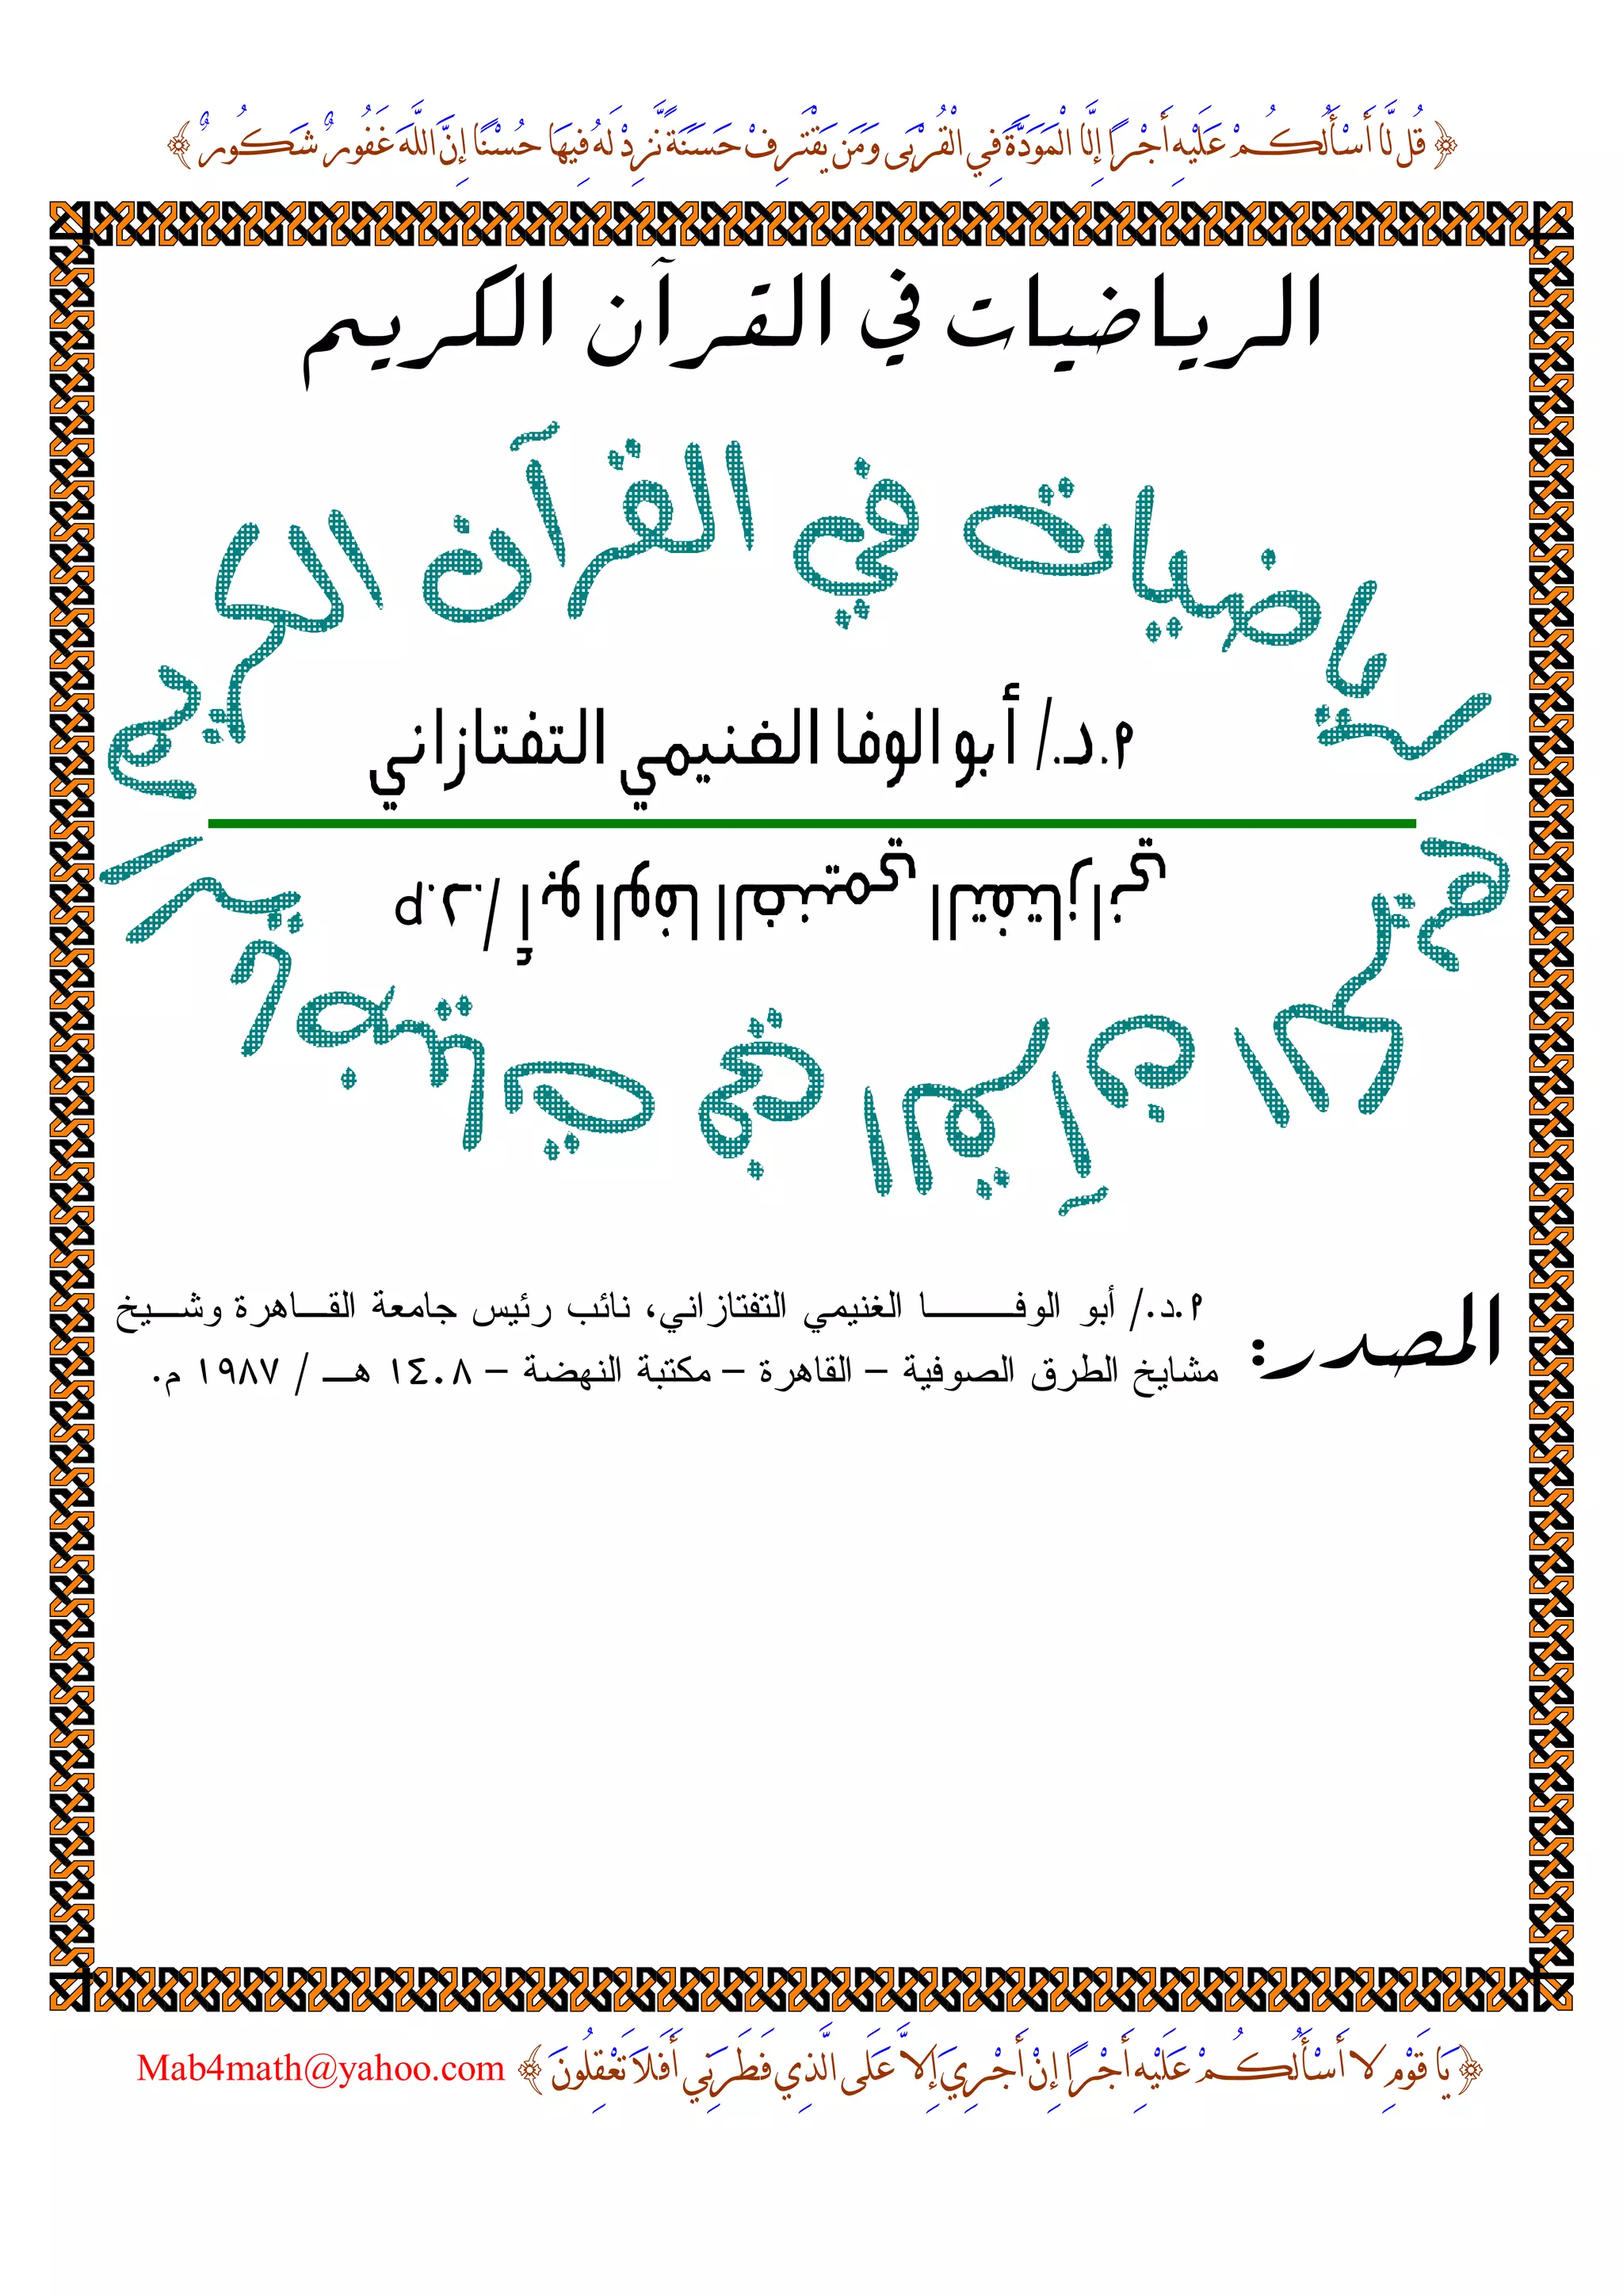 ﴿ قُل لَّا أَسْأَلُكُمْ عَلَيْهِ أَجْرًا إِلَّا الْمَوَدَّةَ فِي الْقُرْبَى وَمَن يَقْتَرِفْ حَسَنَةً نَّزِدْ لَهُ فِيهَا حُسْنًا إِنَّ اللَّهَ غَفُورٌ شَكُورٌ ﴾
الرياضيات في القرآن الكريم
الرياضيات في القرآن الكريم
م.د./ أبو الوفا الغنيمي التفتازاني
م.د./ أبو الوفا الغنيمي التفتازاني
الرياضيات في القرآن الكريم
المصدر:
م.د./ أبو الوفـــــا الغنيمي التفتازاني، نائب رئيس جامعة القـــاهرة وشـــيخ
مشايخ الطرق الصوفية – القاهرة – مكتبة النهضة – ١٤٠٨ هـــ / ١٩٨٧ م.
﴿ يَا قَوْمِ لا أَسْأَلُكُمْ عَلَيْهِ أَجْرًا إِنْ أَجْرِيَ إِلاَّ عَلَى الَّذِي فَطَرَنِي أَفَلاَ تَعْقِلُونَ ﴾ Mab4math@yahoo.com